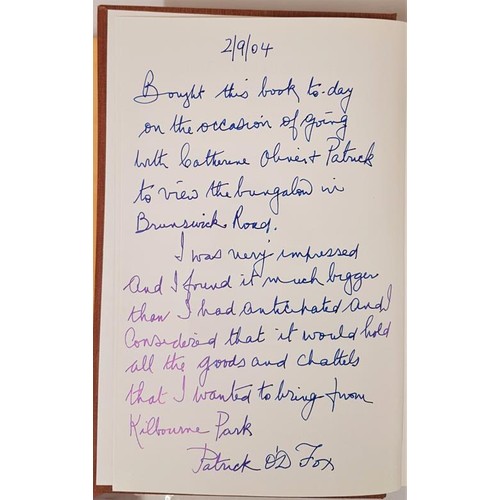 2/9/04
Bought this book to-day
on the occasion of going
with Catherine Oliver & Patrick
to view the bungalow in
Brunswick Road.
I was very impressed
and I found it much bigger
than I had anticipated and I
considered that it would hold
all the goods and chattels
that I wanted to bring from
Kilbourne Park
Patrick O'D Fox